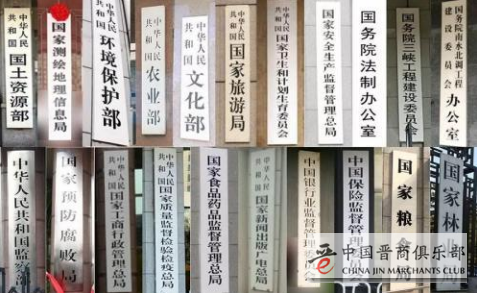 中华人民
共和国
国土资源部
国家测绘地理信息局
中华人民
共和国
环境保护部
中华人民
共和国
农业部
中华人民
共和国
文化部
中华人民
共和国
国家旅游局
中华人民
共和国
国家卫生和计划生育委员会
国家安全生产监督管理总局
国务院法制办公室
国务院三峡工程建设委员会
国务院南水北调工程
建设委员会
办公室
中华人民共和国监
国家预防腐败局
中华人民
共和国
国家工商行政管理总局
中华人民
共和国
国家质量监督检验检疫总局
国家食品药品监督管理总局
国家新闻出版广电总局
中国银行业监督管理
中国保险监督管理
国家粮
国家林
中国晋商俱乐部
CHINA JIN MERCHANTS CLUB